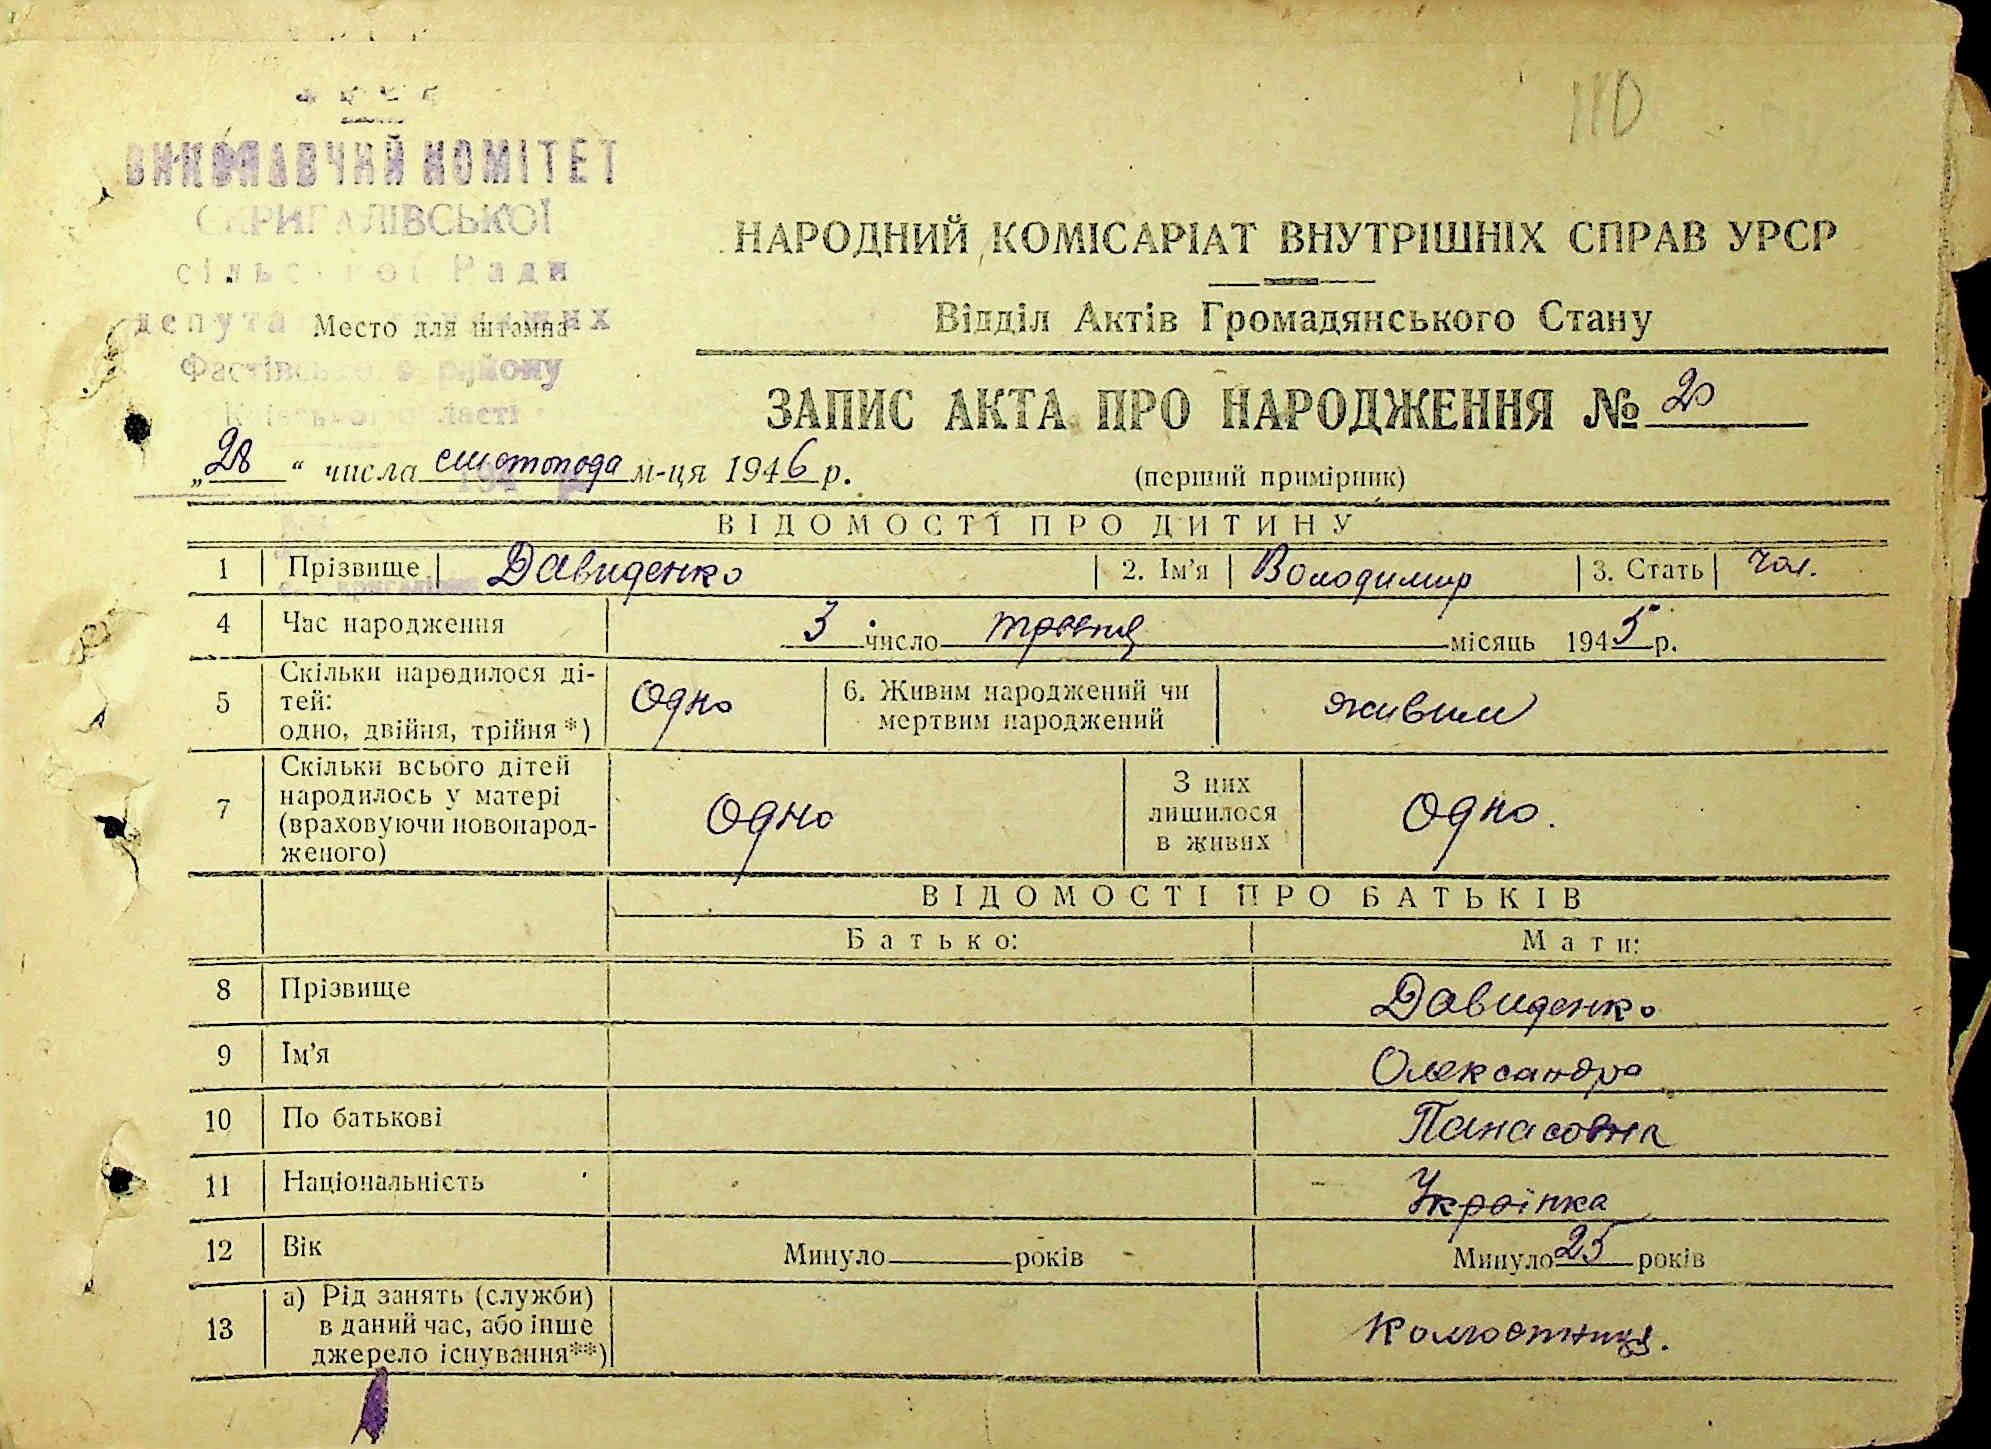 110
УРСР
ВИКОНАВЧИЙ КОМІТЕТ
СКРИГАЛІВСЬКОЇ
сільської Ради
депутатів трудящих
Место для штампа
Фастівського району
Київської області
НАРОДНИЙ КОМІСАРІАТ ВНУТРІШНІХ СПРАВ УРСР
Відділ Актів Громадянського Стану
ЗАПИС АКТА ПРО НАРОДЖЕННЯ №
„28“ числа листопода м-ця 1946 р.
(перший примірник)
ВІДОМОСТІ ПРО ДИТИНУ
1 Прізвище Давиденко 2. Ім'я Володимир 3. Стать чол.
4 Час народження 3 число травня місяць 1945 р.
5 Скільки народилося ді-
тей:
одно, двійня, трійня *) Одно 6. Живим народжений чи
мертвим народжений живим
7 Скільки всього дітей
народилось у матері
(враховуючи новонарод-
женого) Одно З них
лишилося
в живих Одно.
ВІДОМОСТІ ПРО БАТЬКІВ
Батько: Мати:
8 Прізвище Давиденко
9 Ім'я Олександра
10 По батькові Панасовна
11 Національність Українка
12 Вік Минуло років Минуло 25 років
13 а) Рід занять (служби)
в даний час, або інше
джерело існування**) Колгостниця.